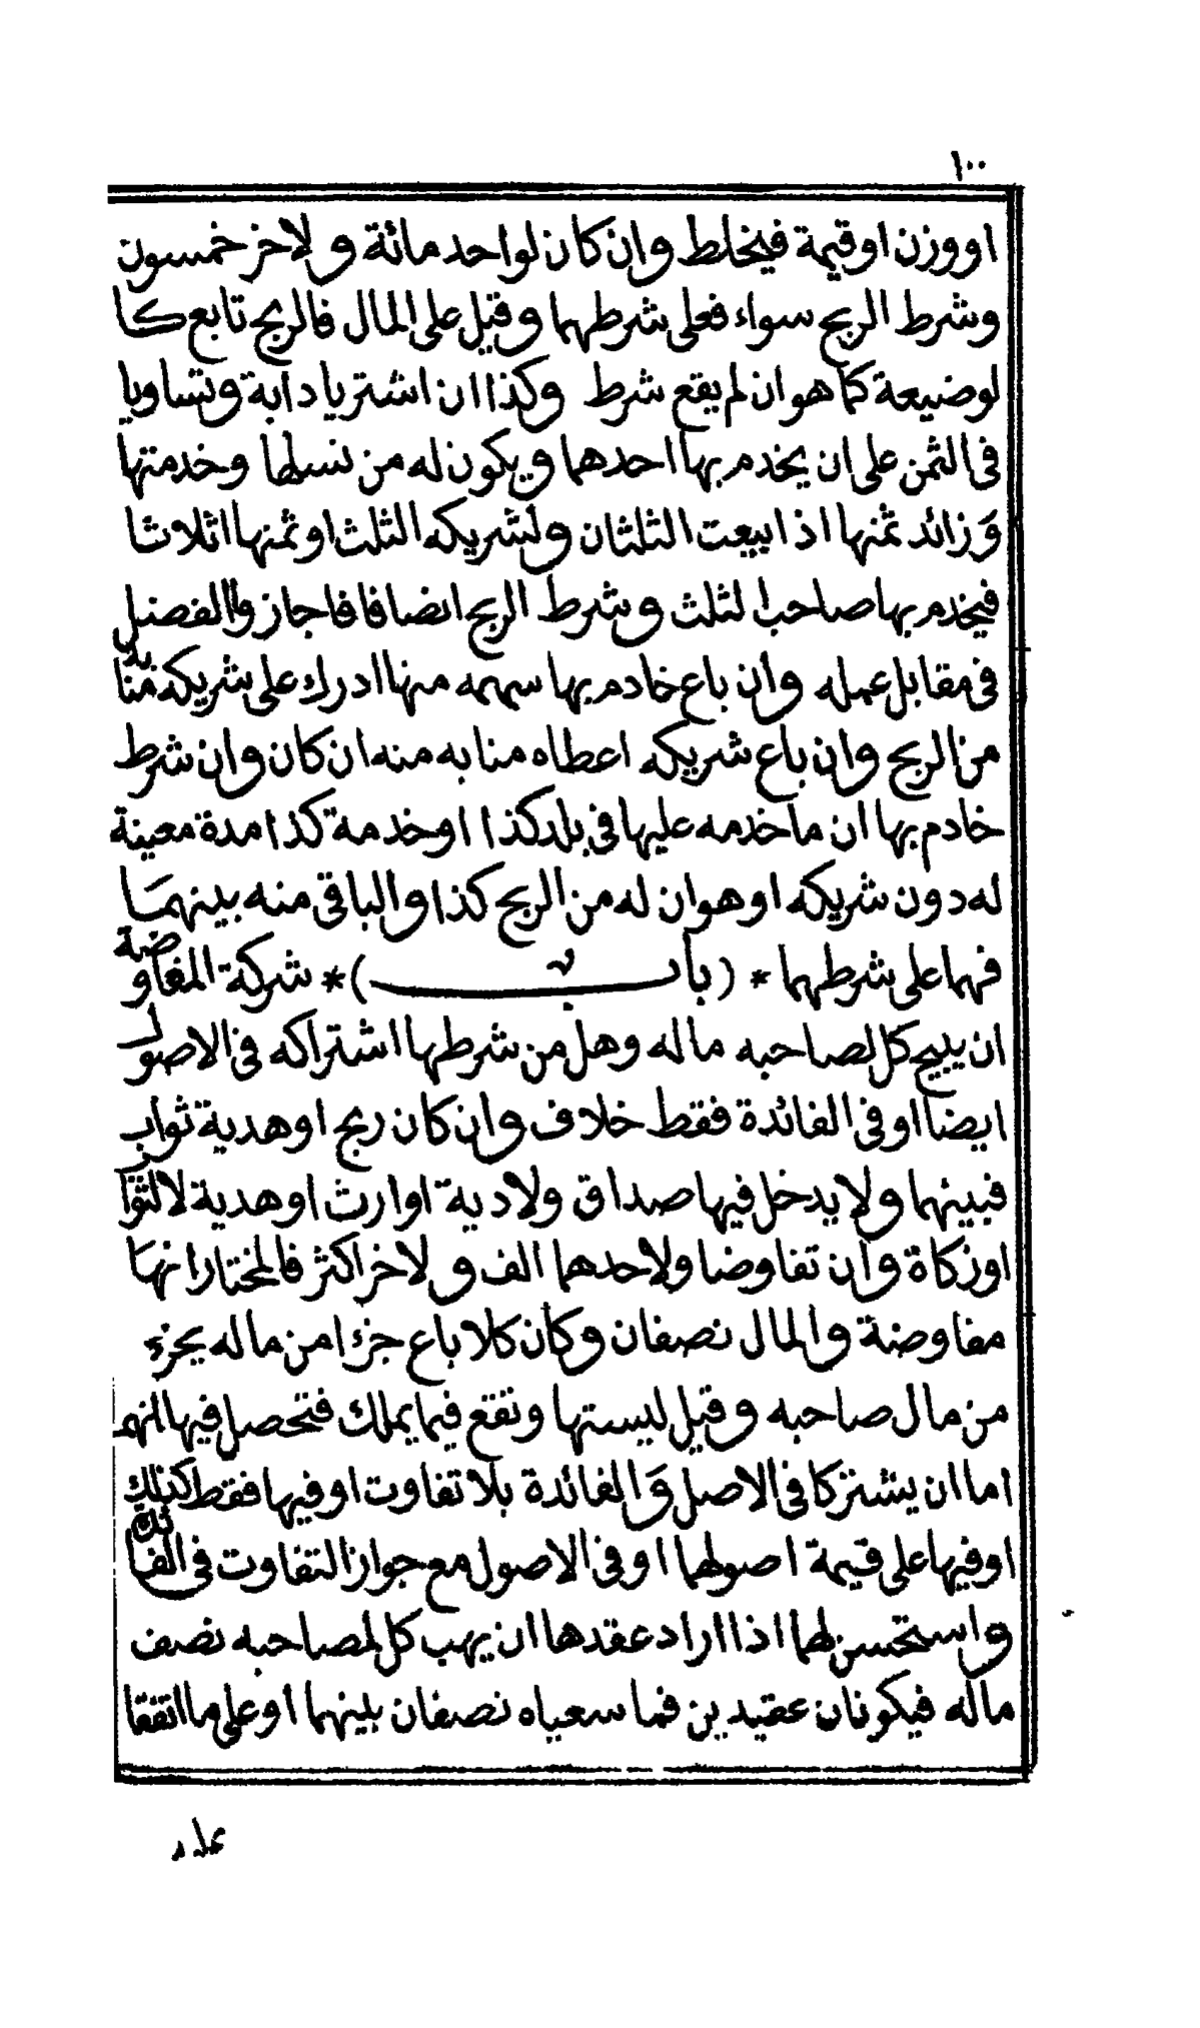 ١٠٠
او وزن او قيمة فيخلط وان كان لواحد مائة ولاخر خمسون
وشرط الربح سواء فعلى شرطهما وقيل على المال فالربح تابع كا
لوضيعة كما هو ان لم يقع شرط وكذا ان اشتريا دابة وتساويا
فى الثمن على ان يخدم بها احدهما ويكون له من نسلها وخدمتها
وزائد ثمنها اذا بيعت الثلثان ولشريكه الثلث او ثمنها اثلاثا
فيخدم بها صاحب الثلث وشرط الربح انضافا فاجاز والفضل
فى مقابل عمله وان باع خادم بها سهمه منها ادرك على شريكه منابه
من الربح وان باع شريكه اعطاه منابه منه ان كان وان شرط
خادم بها ان ما خدمه عليها فى بلد كذا او خدمة كذا مدة معينة
له دون شريكه او هو ان له من الربح كذا والباقى منه بينهما
فهما على شرطهما * (باب) * شركة المفاوضة
ان يبيح كل لصاحبه ماله وهل من شرطها اشتراكه فى الاصول
ايضا او فى الفائدة فقط خلاف وان كان ربح او هدية ثواب
فبينهما ولا يدخل فيها صداق ولا دية او ارث او هدية لا لثواب
او زكاة وان تفاوضا ولاحدهما الف ولاخر اكثر فالمختار انها
مفاوضة والمال نصفان وكان كلا باع جزءا من ماله بجزء
من مال صاحبه وقيل ليستها وتقع فيما يملك فتحصل فيها انهما
اما ان يشتركا فى الاصل والفائدة بلا تفاوت او فيها فقط كذلك
او فيها على قيمة اصولهما او فى الاصول مع جواز التفاوت فى الفائدة
واستحسن لهما اذا اراد عقدها ان يهب كل لصاحبه نصف
ماله فيكونان عقيدين فما سعياه نصفان بينهما او على ما اتفقا